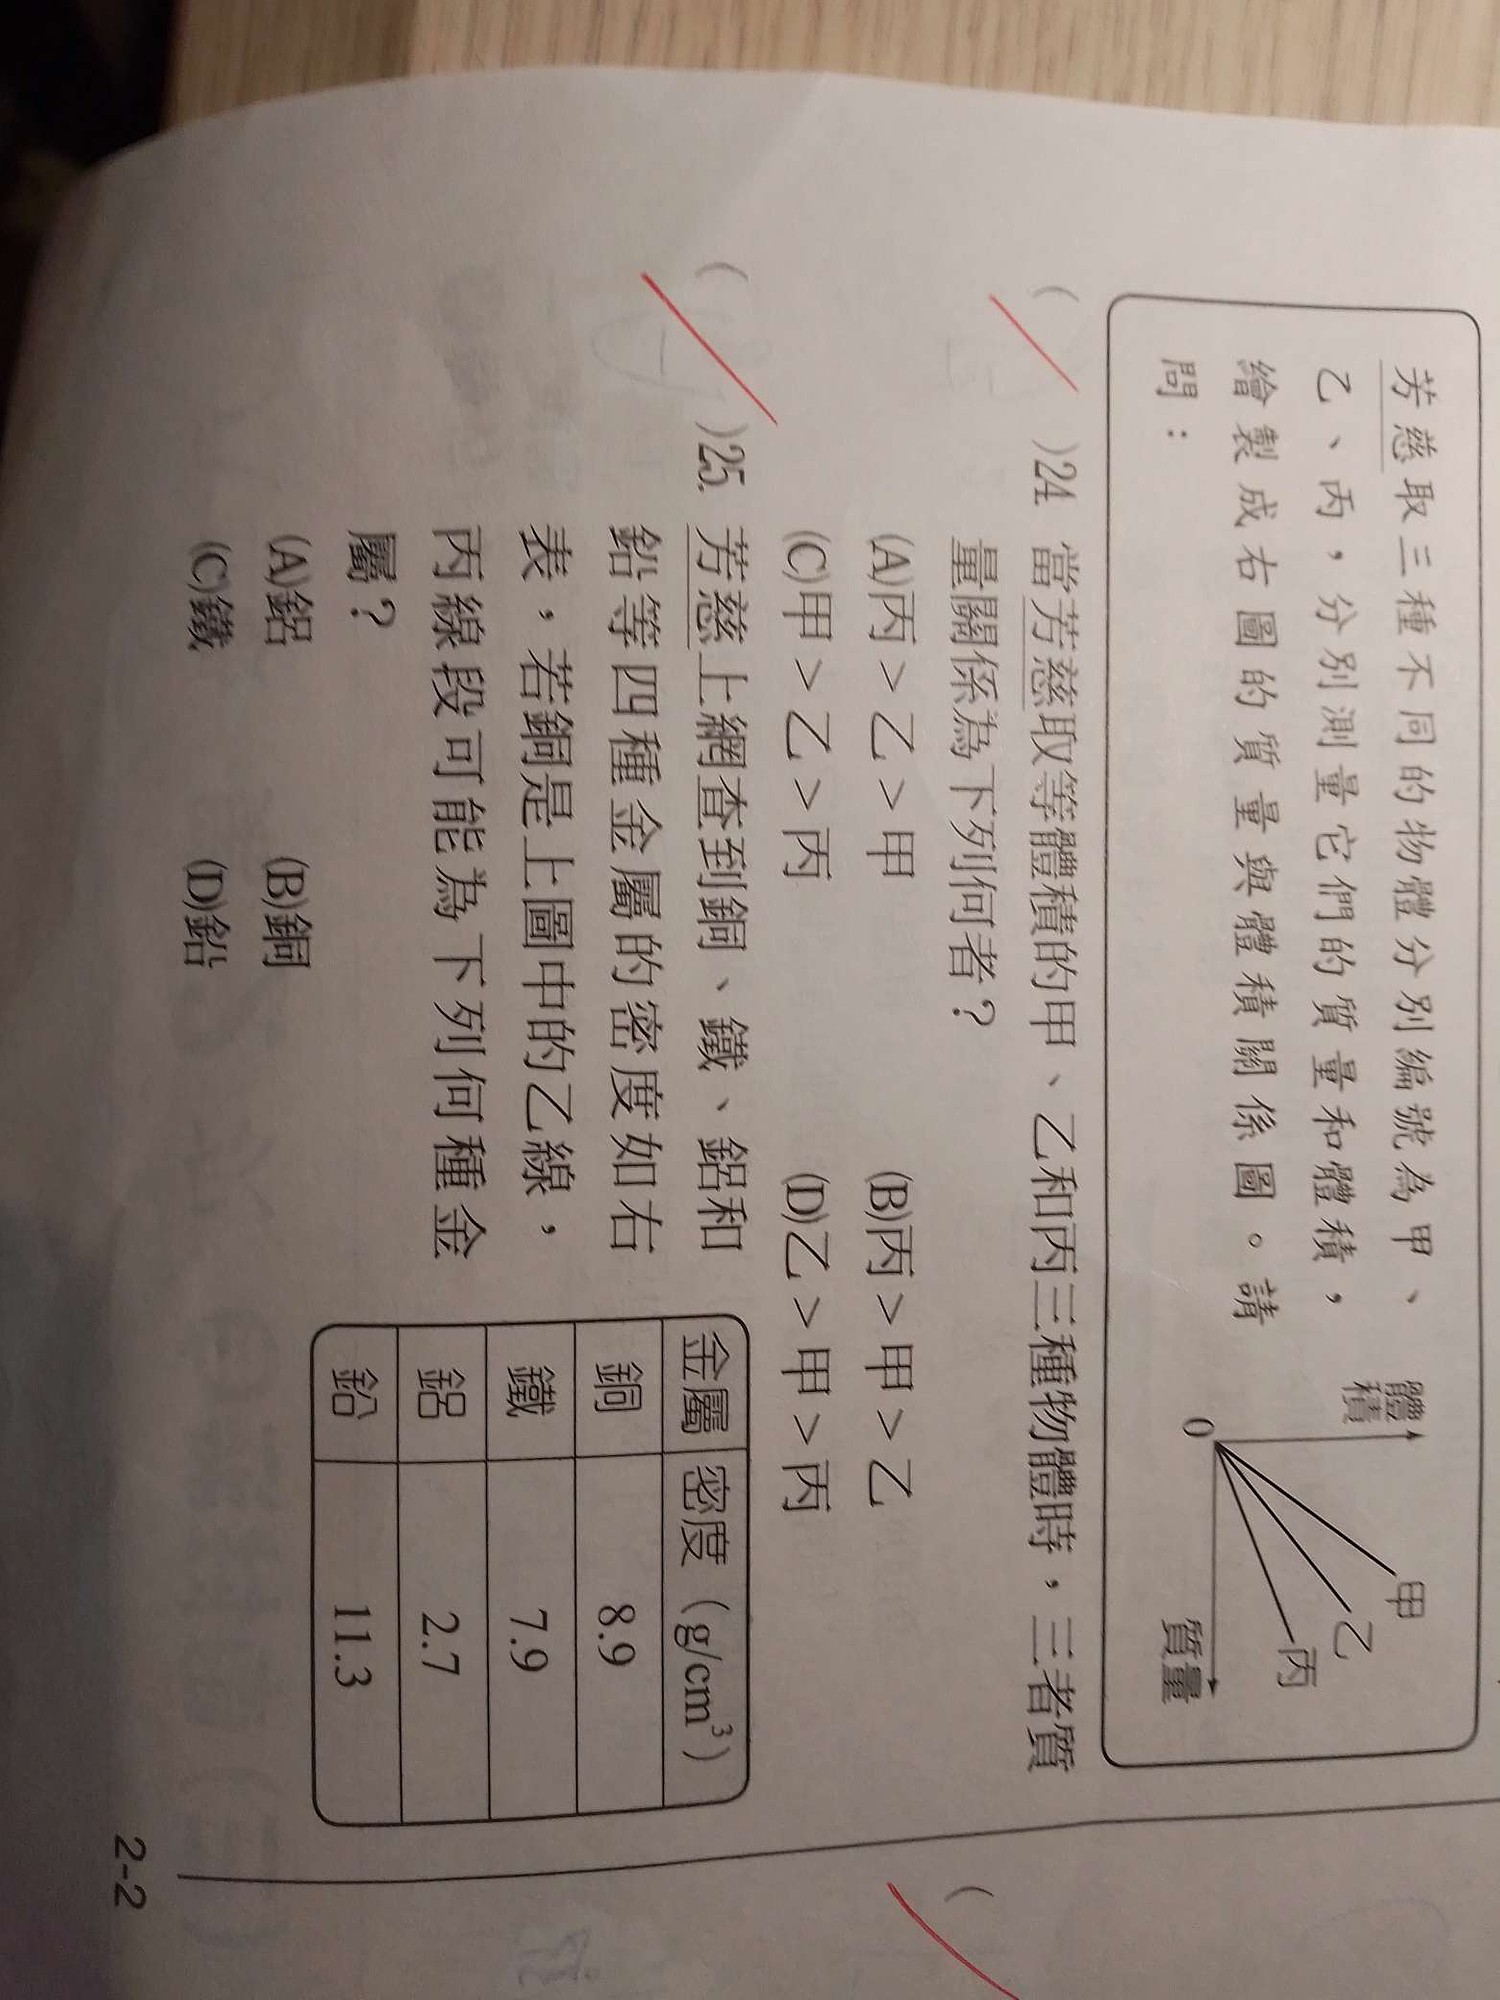 芳慈取三種不同的物體分別編號為甲、
乙、丙，分別測量它們的質量和體積，
繪製成右圖的質量與體積關係圖。請
問：
體積
甲
乙
丙
0
質量
( )24. 當芳慈取等體積的甲、乙和丙三種物體時，三者質
量關係為下列何者？
(A)丙＞乙＞甲 (B)丙＞甲＞乙
(C)甲＞乙＞丙 (D)乙＞甲＞丙
( )25. 芳慈上網查到銅、鐵、鋁和
鉛等四種金屬的密度如右
表，若銅是上圖中的乙線，
丙線段可能為下列何種金
屬？
(A)鋁 (B)銅
(C)鐵 (D)鉛
金屬 密度（g/cm³）
銅 8.9
鐵 7.9
鋁 2.7
鉛 11.3
(
2-2